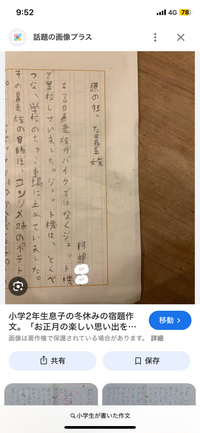 9:52
4G 78
話題の画像プラス
頭の狂った暴走族
ある日暴走族がバイクではなくジェット機
で登校していました。ジェット機は、とくべ
つな、学校のちゅう車場に止めていました。
その暴走族の目的は、コンソメ味のポテト
小学2年生息子の冬休みの宿題作
文。「お正月の楽しい思い出を…
移動
画像は著作権で保護されている場合があります。 詳細
共有
保存
小学生が書いた作文